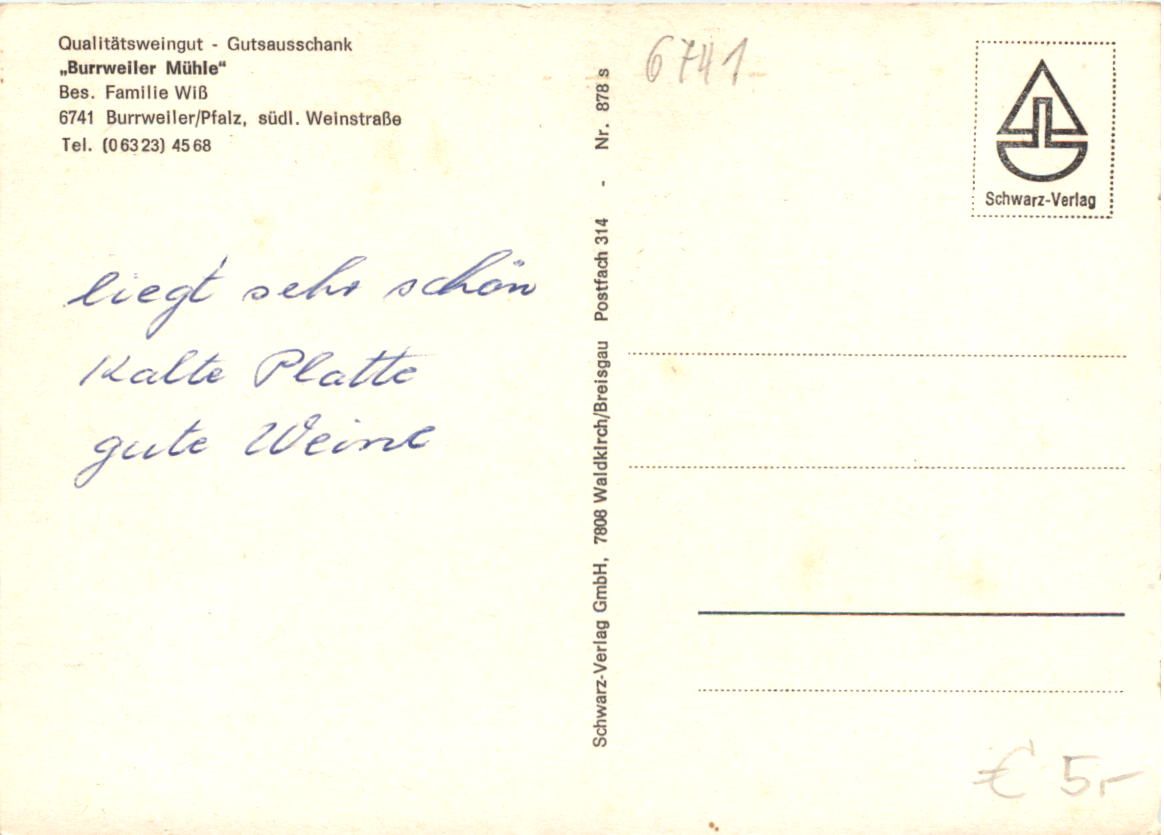 Qualitätsweingut - Gutsausschank
„Burrweiler Mühle“
Bes. Familie Wiß
6741 Burrweiler/Pfalz, südl. Weinstraße
Tel. (0 63 23) 45 68
liegt sehr schön
Kalte Platte
gute Weine
Schwarz-Verlag GmbH, 7808 Waldkirch/Breisgau Postfach 314 - Nr. 878 s
6741
Schwarz-Verlag
€ 5,-